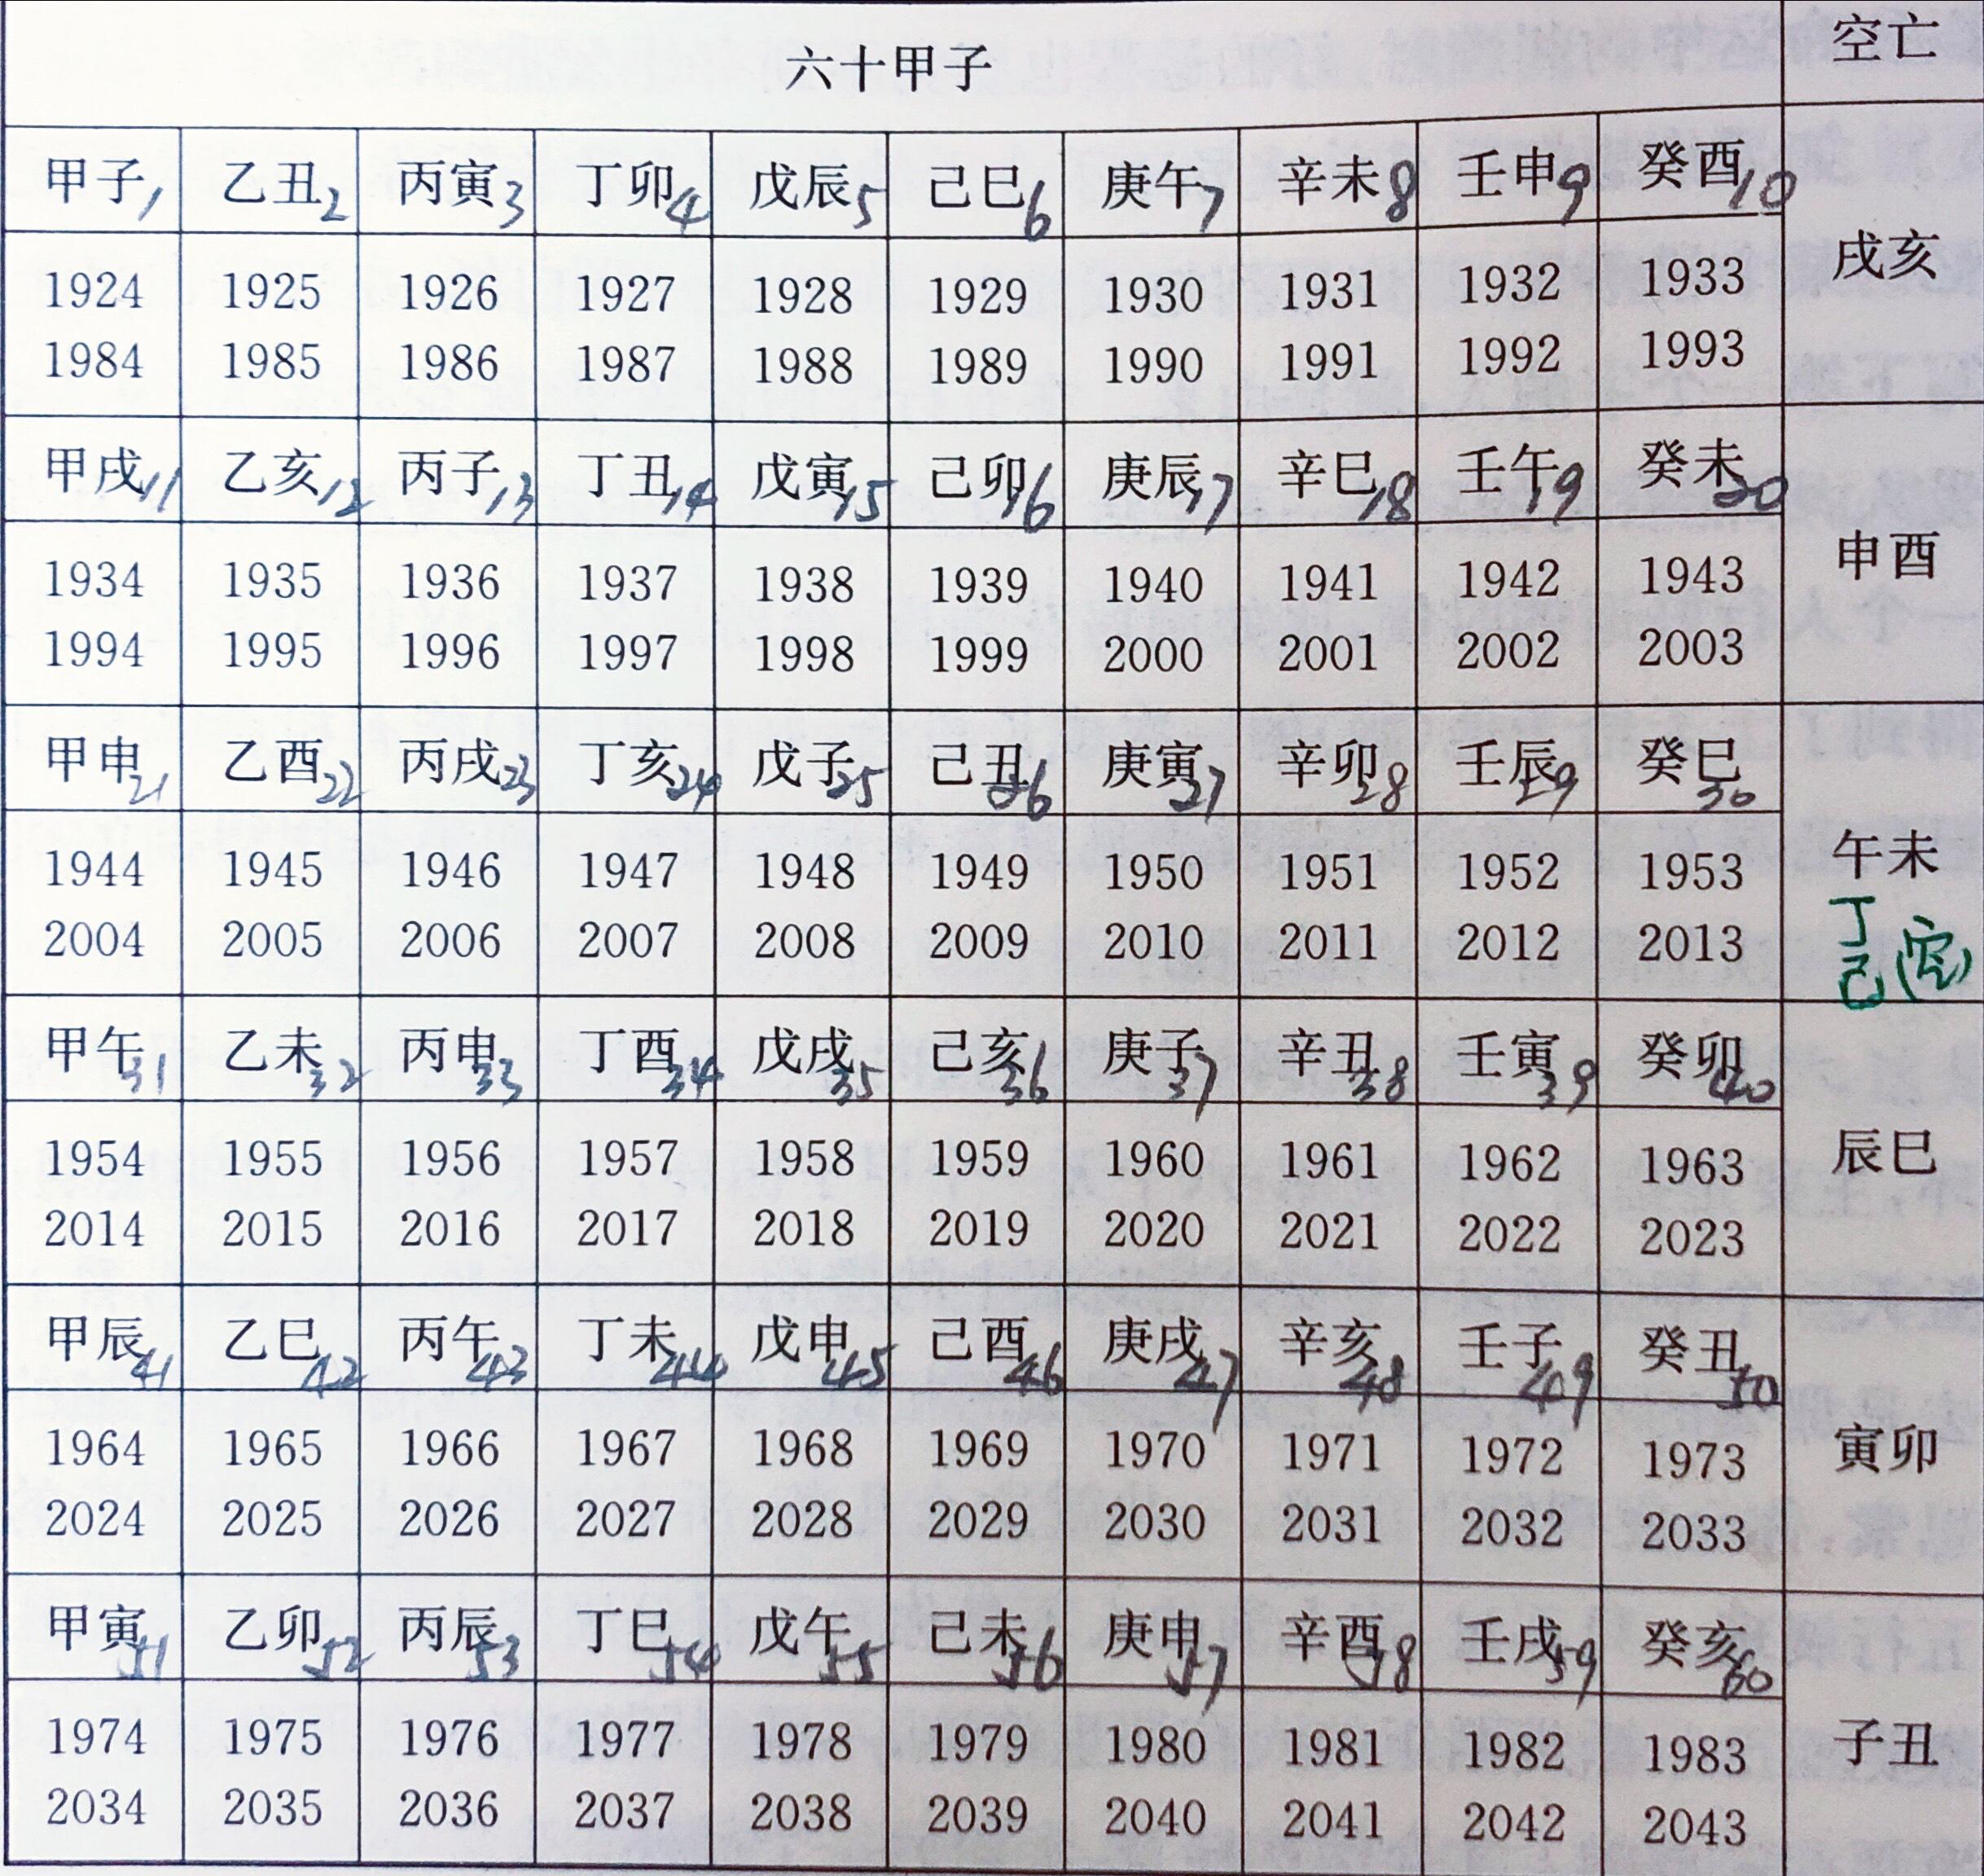 六十甲子 空亡
甲子1 乙丑2 丙寅3 丁卯4 戊辰5 己巳6 庚午7 辛未8 壬申9 癸酉10
戌亥
1924 1925 1926 1927 1928 1929 1930 1931 1932 1933
1984 1985 1986 1987 1988 1989 1990 1991 1992 1993
甲戌11 乙亥12 丙子13 丁丑14 戊寅15 己卯16 庚辰17 辛巳18 壬午19 癸未20
申酉
1934 1935 1936 1937 1938 1939 1940 1941 1942 1943
1994 1995 1996 1997 1998 1999 2000 2001 2002 2003
甲申21 乙酉22 丙戌23 丁亥24 戊子25 己丑26 庚寅27 辛卯28 壬辰29 癸巳30
午未
1944 1945 1946 1947 1948 1949 1950 1951 1952 1953
2004 2005 2006 2007 2008 2009 2010 2011 2012 2013
丁
己
甲午31 乙未32 丙申33 丁酉34 戊戌35 己亥36 庚子37 辛丑38 壬寅39 癸卯40
辰巳
1954 1955 1956 1957 1958 1959 1960 1961 1962 1963
2014 2015 2016 2017 2018 2019 2020 2021 2022 2023
甲辰41 乙巳42 丙午43 丁未44 戊申45 己酉46 庚戌47 辛亥48 壬子49 癸丑50
寅卯
1964 1965 1966 1967 1968 1969 1970 1971 1972 1973
2024 2025 2026 2027 2028 2029 2030 2031 2032 2033
甲寅51 乙卯52 丙辰53 丁巳54 戊午55 己未56 庚申57 辛酉58 壬戌59 癸亥60
子丑
1974 1975 1976 1977 1978 1979 1980 1981 1982 1983
2034 2035 2036 2037 2038 2039 2040 2041 2042 2043